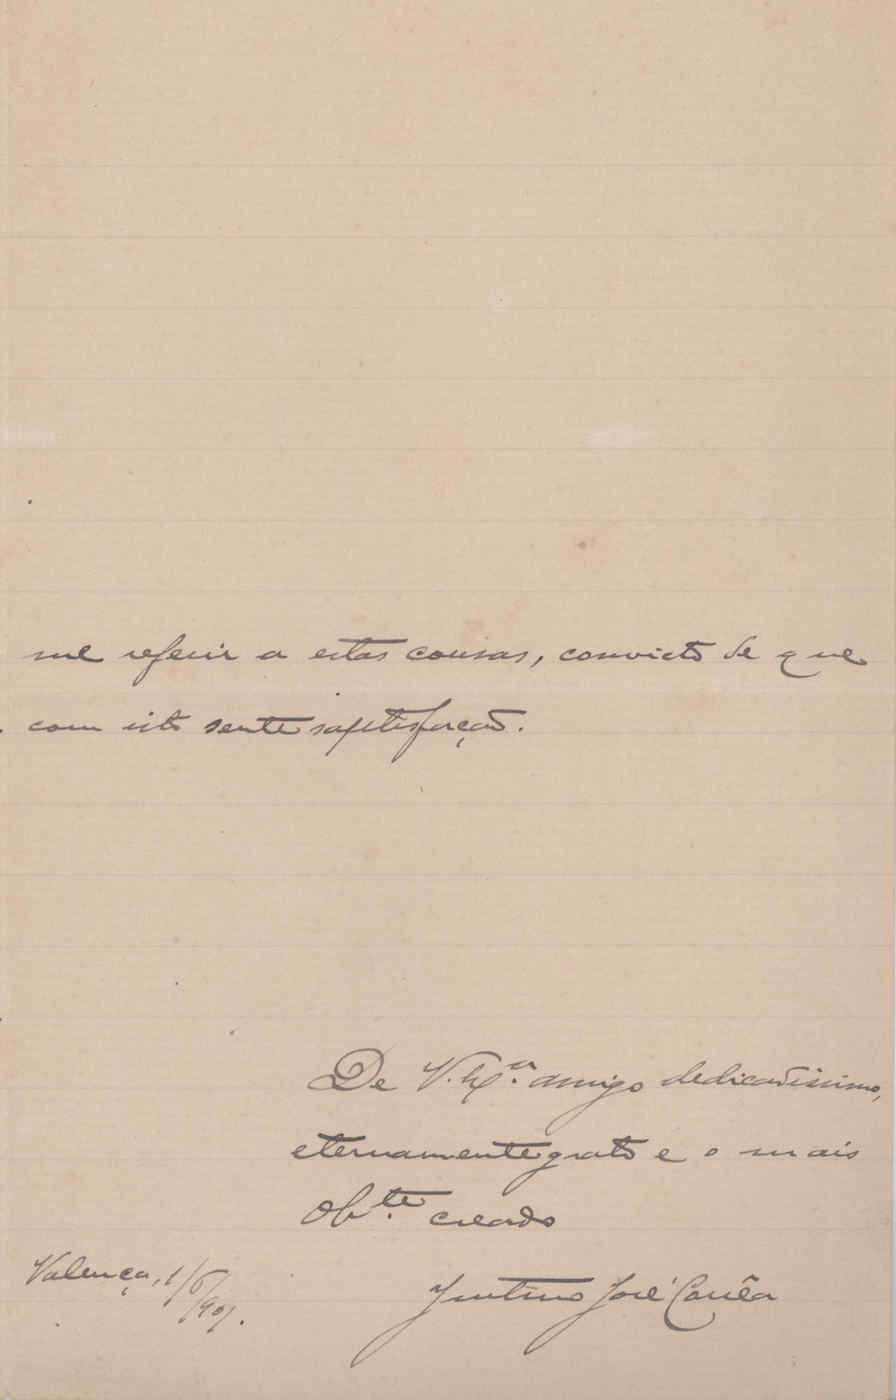 me referir a estas cousas, convicto de que
com isto sente saptisfação.
De V. Ex.cia amigo dedicadissimo,
eternamente grato e o mais
Ob.te creado
Valença, 1/6/901.
José Corrêa